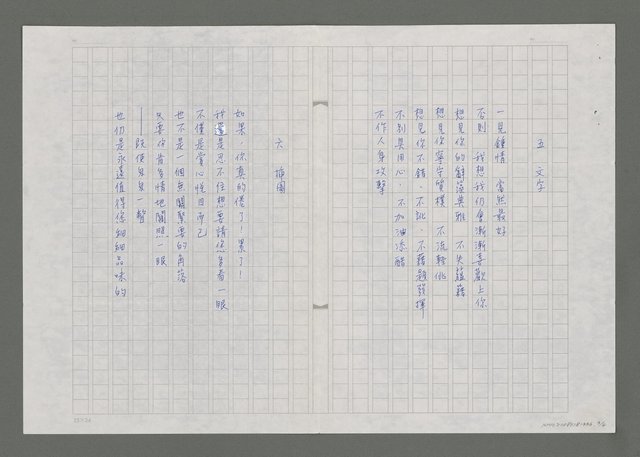 五　文字
一見鍾情　當然最好
否則　我想我仍會漸漸喜歡上你
想見你的辭藻典雅　不失蘊藉
想見你寧守質樸　不流輕佻
想見你不錯、不訛、不藉題發揮
不別具用心、不加油添醋
不作人身攻擊
六　插圖
如果，你真的倦了！累了！
我還是忍不住想要請您多看一眼
不僅是賞心悅目而已
也不是一個無關緊要的角落
只要你肯多情地關照一眼
——既使匆匆一瞥
也仍是永遠值得您細細品味的